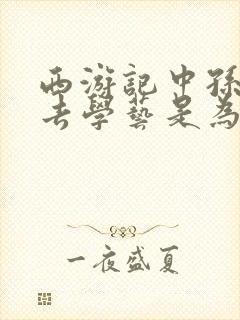 西游記中孫
去學藝是為
一夜盛夏